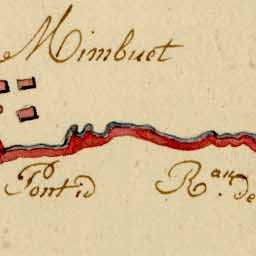 Mimbuet
Pont id
Rau de